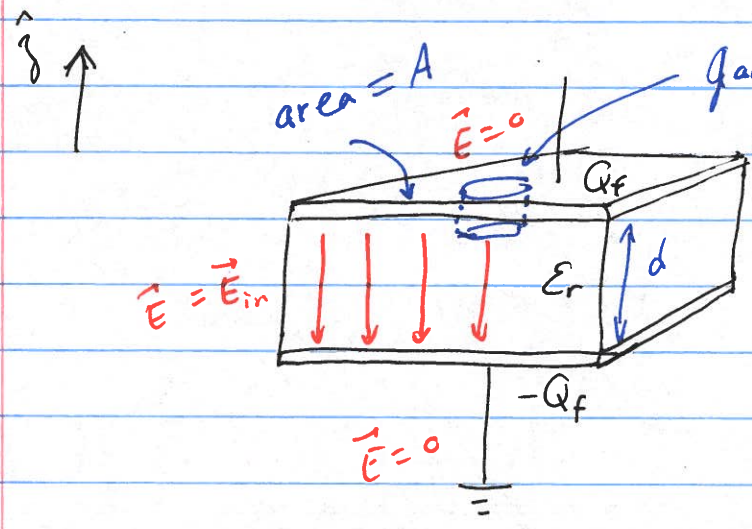 ẑ
area = A
E⃗ = 0
Q_f
E⃗ = E⃗_in
ε_r
d
-Q_f
E⃗ = 0